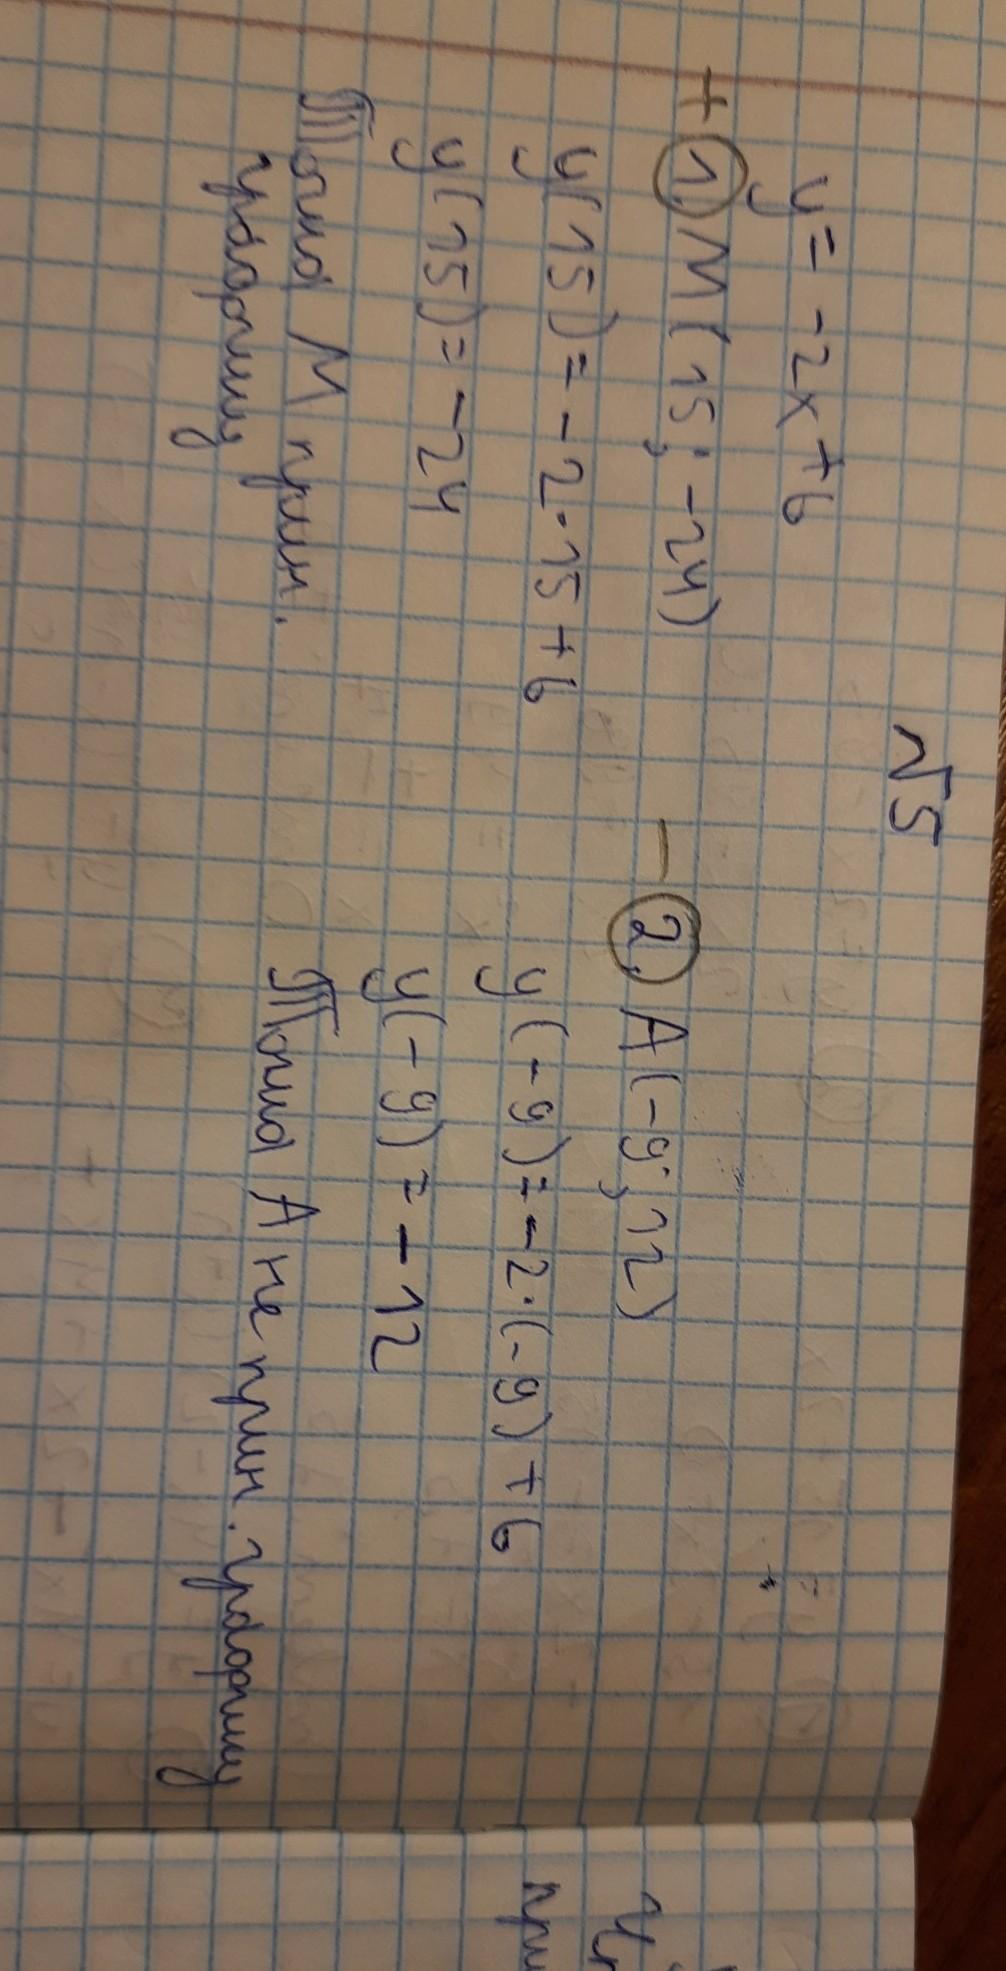 √5
y = -2x + 6
+ 1. M(15; -24)
y(15) = -2·15 + 6
y(15) = -24
Точка М прин.
графику
- 2. A(-9; 12)
y(-9) = -2·(-9) + 6
y(-9) = -12
Точка А не прин. графику
при